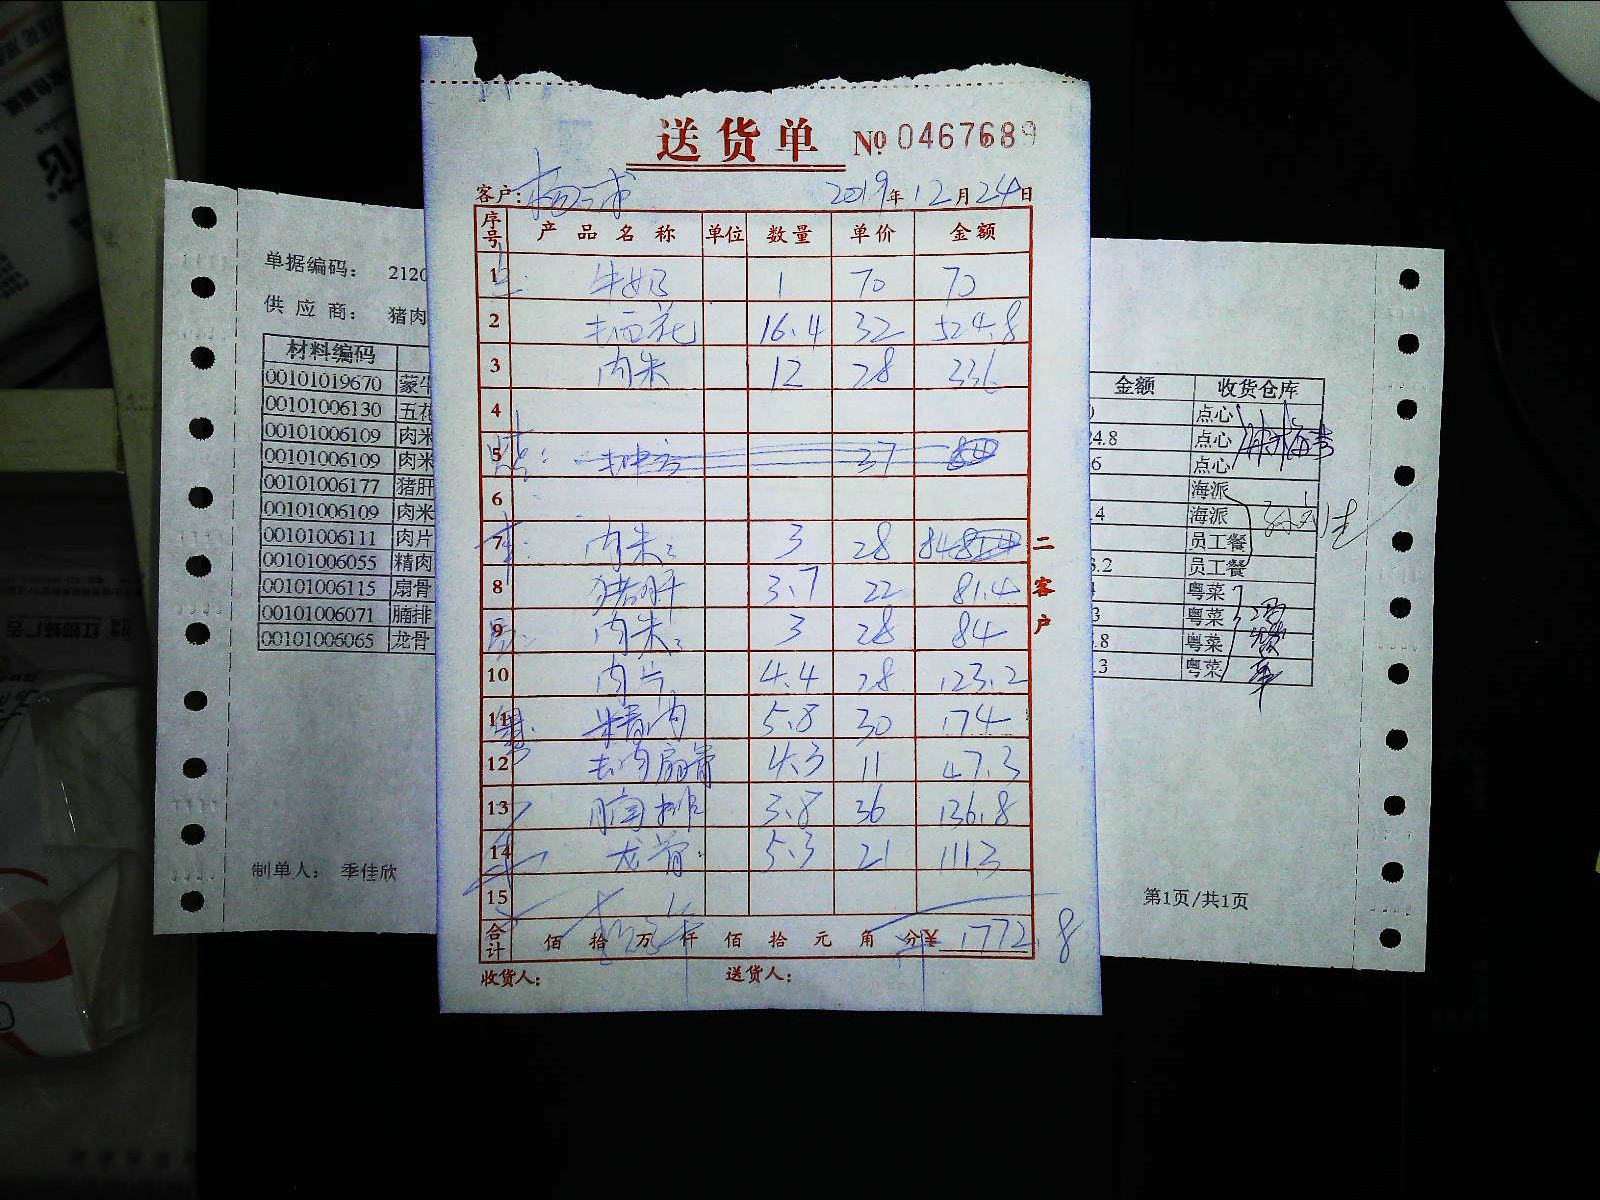 送货单 № 0467689
客户: 杨 2019年12月24日
序号 产品名称 单位 数量 单价 金额
1 牛奶 1 70 70
2 五花 16.4 32 524.8
3 肉米 12 28 336
4
5 37
6
7 肉米 3 28 84
8 猪肝 3.7 22 81.4
9 肉米 3 28 84
10 肉片 4.4 28 123.2
11 精肉 5.8 30 174
12 去肉扇骨 4.3 11 47.3
13 腩排 3.8 36 136.8
14 龙骨 5.3 21 111.3
15
合计 佰 拾 万 仟 佰 拾 元 角 分 ¥ 1772.8
收货人: 送货人:
二客户
单据编码: 2120
供应商: 猪肉
材料编码
00101019670 蒙牛
00101006130 五花
00101006109 肉米
00101006109 肉米
00101006177 猪肝
00101006109 肉米
00101006111 肉片
00101006055 精肉
00101006115 扇骨
00101006071 腩排
00101006065 龙骨
制单人: 季佳欣
金额 收货仓库
点心
24.8 点心
6 点心
海派
.4 海派
员工餐
3.2 员工餐
粤菜
3 粤菜
.8 粤菜
.3 粤菜
第1页/共1页